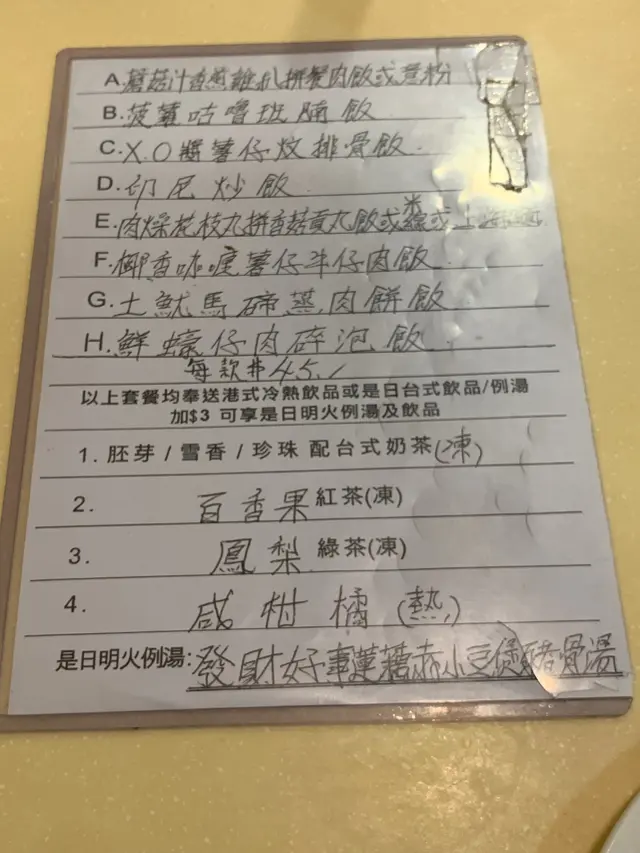 A.蘑菇汁香煎雞扒拼餐肉飯或意粉
B.菠蘿咕嚕班腩飯
C.X.O醬薯仔炆排骨飯
D.印尼炒飯
E.肉燥花枝丸拼香菇貢丸飯或米線或上海
F.椰香咖喱薯仔牛仔肉飯
G.土魷馬蹄蒸肉餅飯
H.鮮蠔仔肉碎泡飯
每款$45./
以上套餐均奉送港式冷熱飲品或是日台式飲品/例湯
加$3 可享是日明火例湯及飲品
1. 胚芽/雪香/珍珠 配台式奶茶(凍)
2. 百香果紅茶(凍)
3. 鳳梨 綠茶(凍)
4. 咸柑橘(熱)
是日明火例湯:發財好事蓮藕赤小豆煲豬骨湯